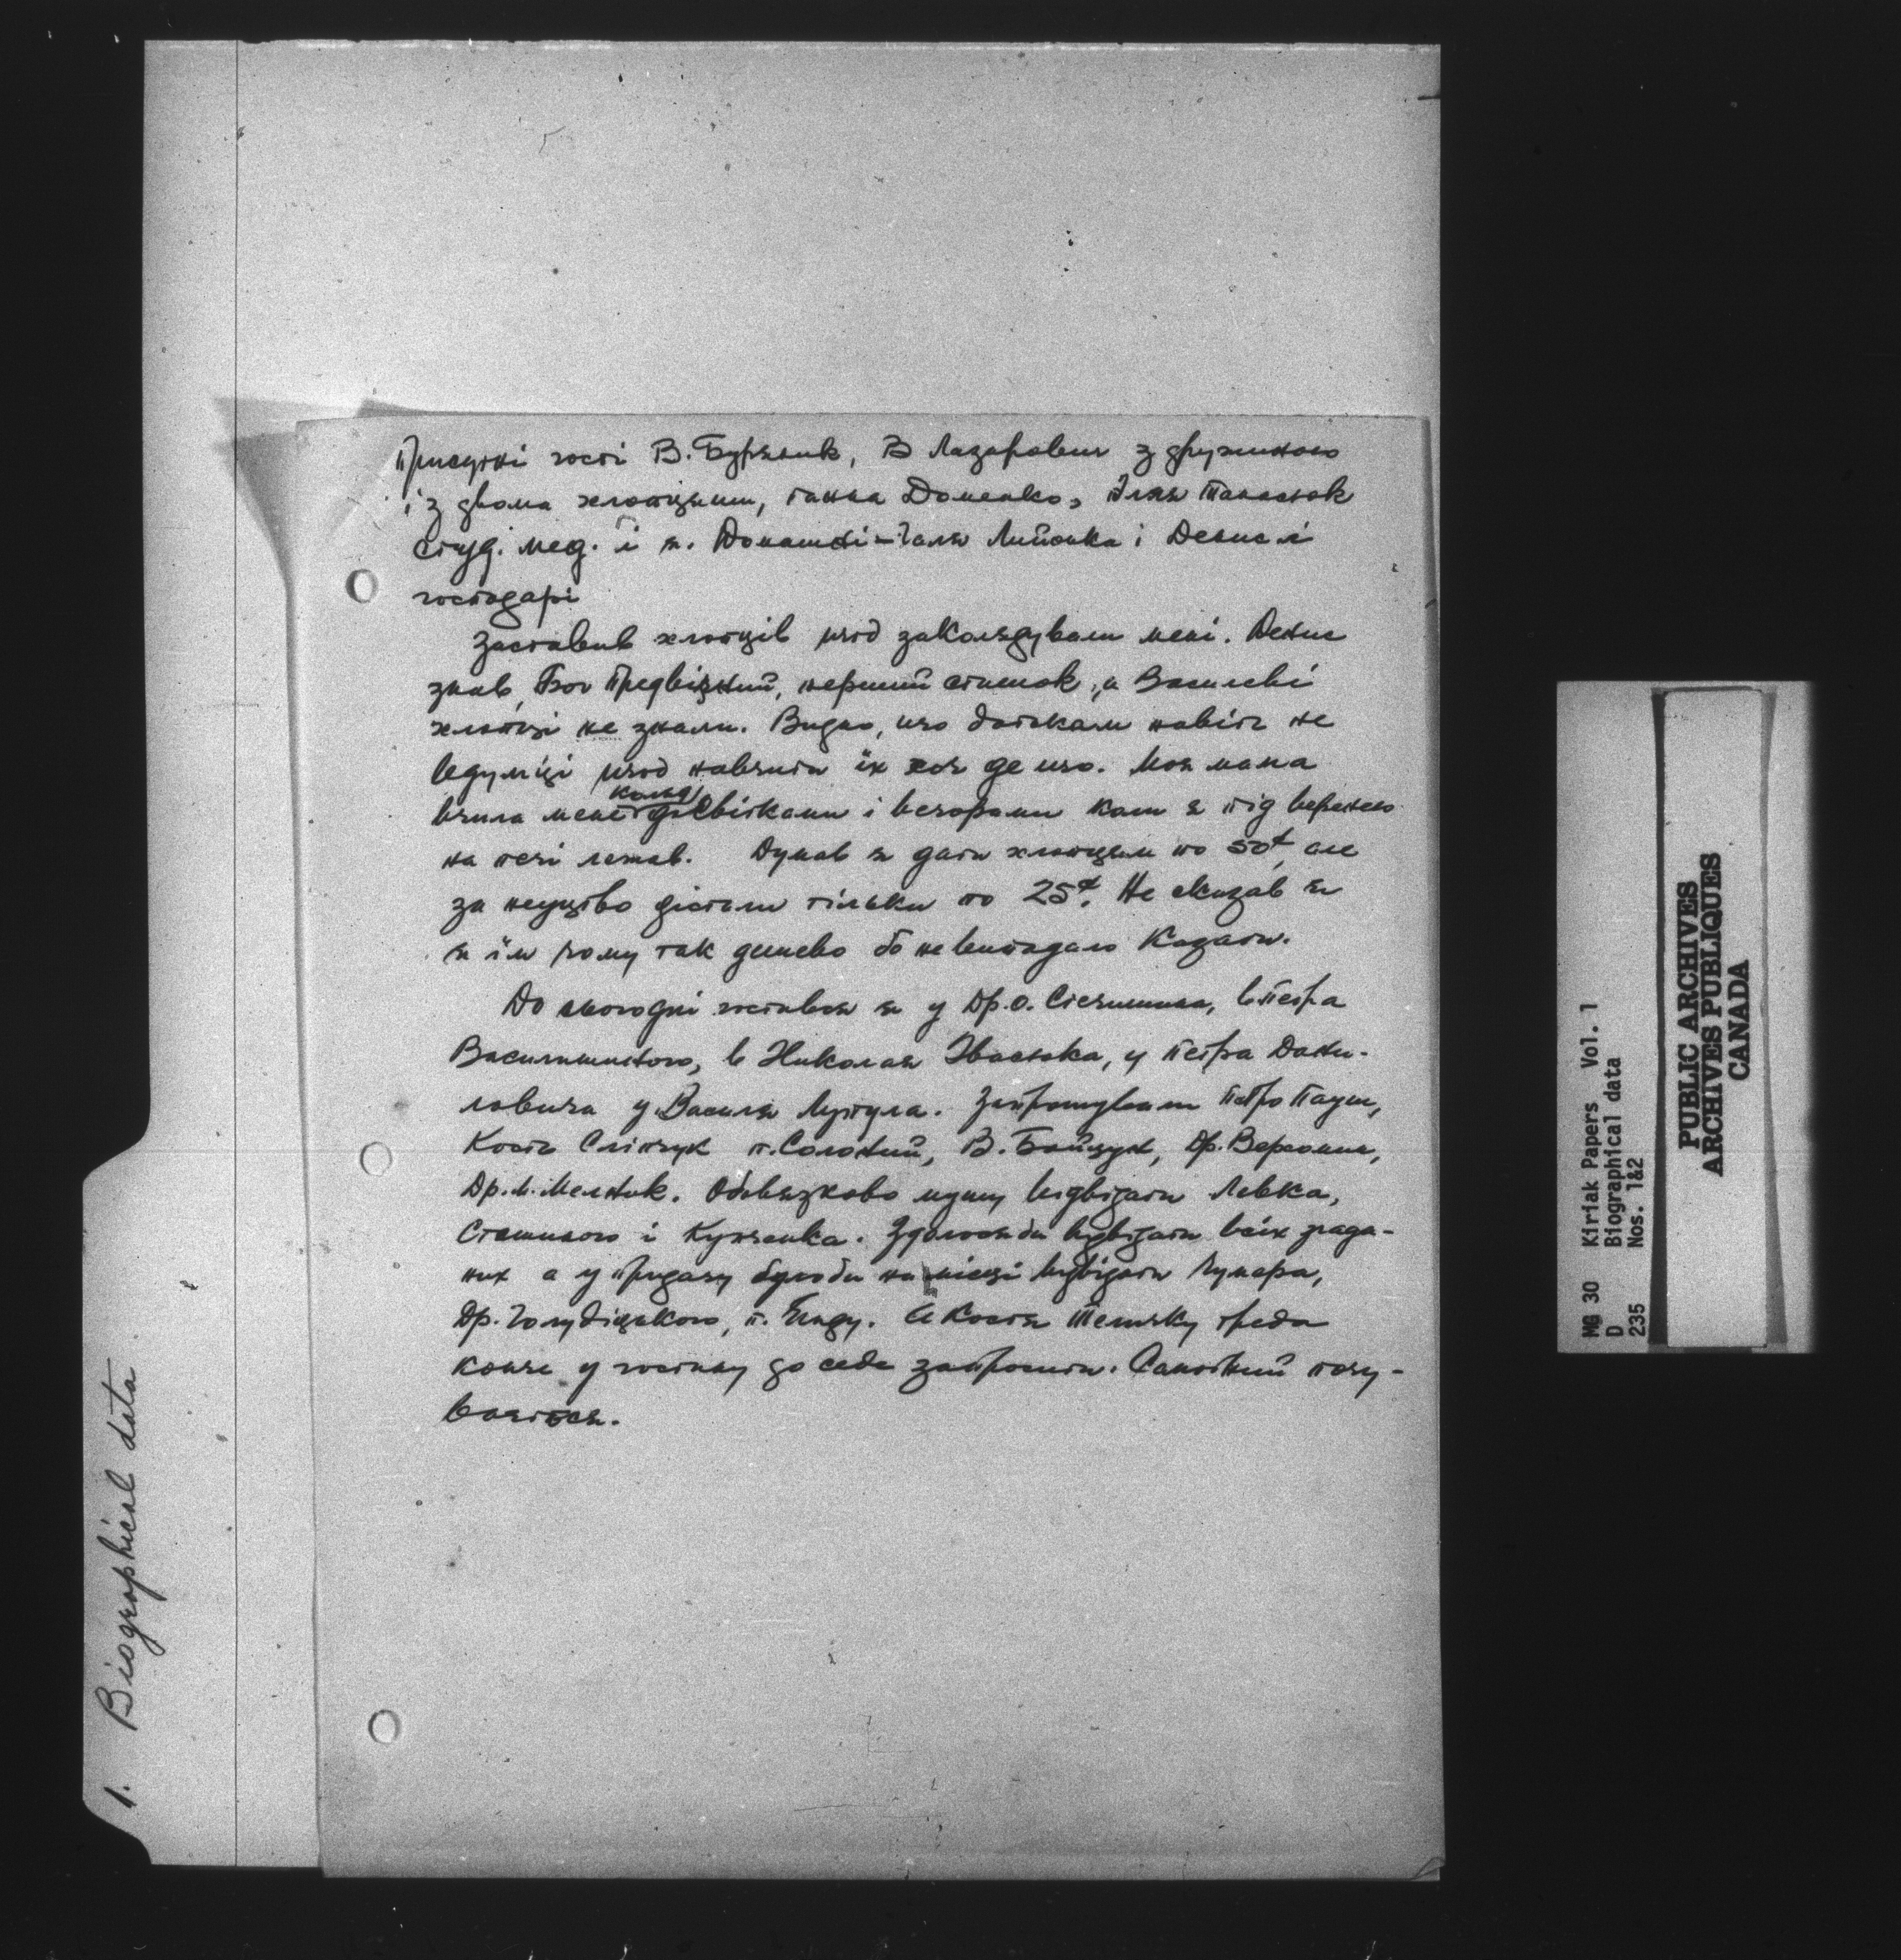 Присутні гості В. Буряник, В Лазарович з дружиною
і з двома хлопцями, панна Доменко, Ілля Танасюк
студ. мед. і п. Домашні – Галя Лийонка і Денис і
господарі
Заставив хлопців щоб заколядували мені. Денис
знав, Бог Предвічний, перший стишок, а Василеві
хлопці не знали. Видно, що батькам навіть не
ведумці щоб навчити їх хоч де що. Моя мама
вчила мене коляд досвітками і вечорами коли я під вереною
на печі лежав. Думав я дати хлопцям по 50¢, але
за неуцтво дістали тільки по 25¢. Не сказав я
я їм чому так дешево бо не випадало казати.
До сьогодні гостився я у Др. О. Стечишина, в Петра
Василишиного, в Николая Івасюка, у Петра Дани-
ловича у Василя Лупула. Запрошували Петро Пауш,
Кость Сліпчук п. Солоний, В. Бойчук, Др. Верхомин,
Др. М. Мелник. Обовязково мушу відвідати Левка,
Стешиного і Купченка. Здалося би відвідати всіх згада-
них а у придачу було би на місці відвідати Гумера,
Др. Голубіцького, п. Янду. А Костя Теличку треба
конче у гостину до себе запросити. Самотний почу-
вається.
1. Biographical data
MG 30 Kiriak Papers Vol. 1
D Biographical data
235 Nos. 1&2
PUBLIC ARCHIVES
ARCHIVES PUBLIQUES
CANADA